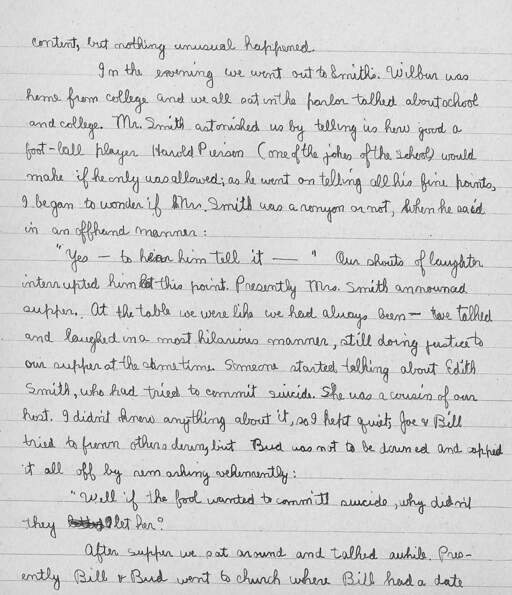 content, but nothing unusual happened.
In the evening we went out to Smith's. Wilbur was
home from college and we all sat in the parlor talked about school
and college. Mr. Smith astonished us by telling us how good a
foot-ball player Harold Pierson (one of the jokes of the school) would
make if he only was allowed; as he went on telling all his fine points,
I began to wonder if Mr. Smith was a or not, when he said
in an offhand manner:
"Yes — to hear him tell it — " Our shouts of laughter
interrupted him at this point. Presently Mrs. Smith announced
supper. At the table we were like we had always been — we talked
and laughed in a most hilarious manner, still doing justice to
our supper at the same time. Someone started talking about Edith
Smith, who had tried to commit suicide. She was a cousin of our
host. I didn't know anything about it, so I kept quiet, Joe & Bill
tried to frown others down, but Bud was not to be downed and capped
it all off by remarking vehemently:
"Well if the fool wanted to committ suicide, why didn't
they let her?
After supper we sat around and talked awhile. Pres-
ently Bill & Bud went to church where Bill had a date